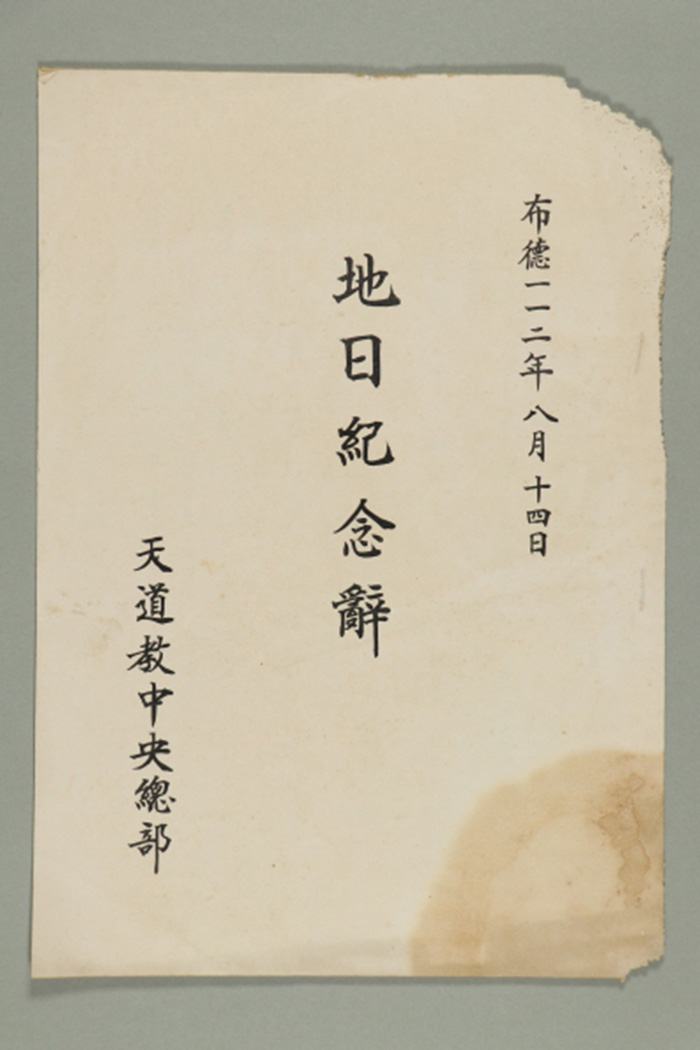 布德一一二年 八月 十四日
地日紀念辭
天道教中央總部